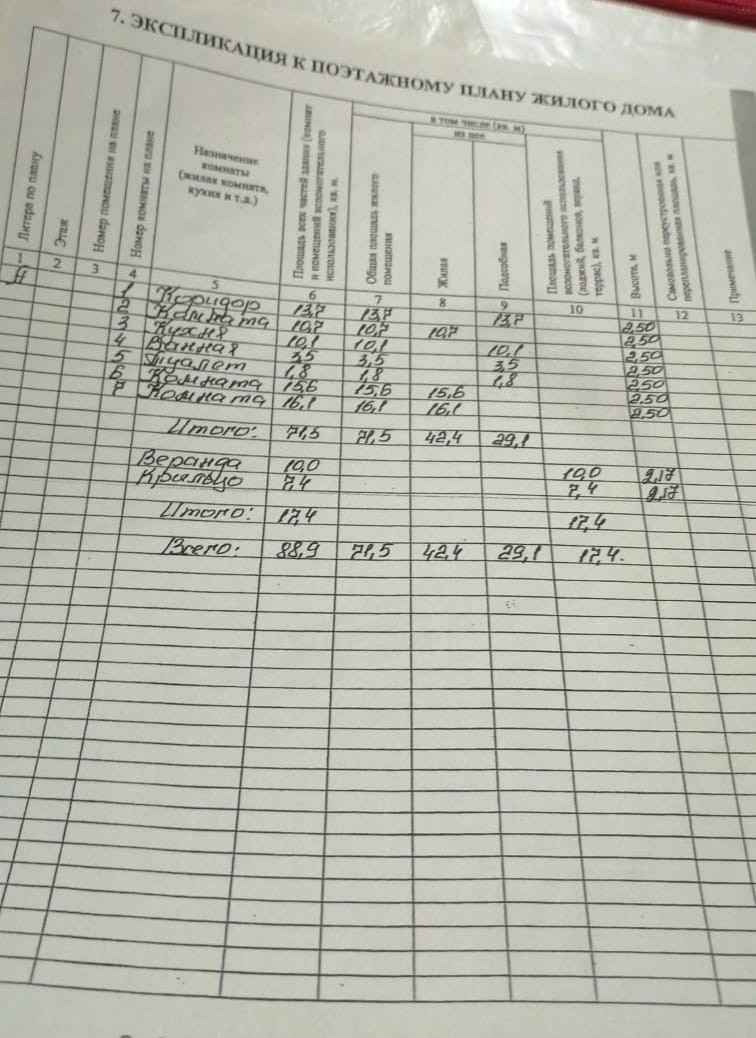 7. ЭКСПЛИКАЦИЯ К ПОЭТАЖНОМУ ПЛАНУ ЖИЛОГО ДОМА
Литера по плану
Этаж
Номер помещения на плане
Номер комнаты на плане
Назначение комнаты (жилая комната, кухня и т.д.)
Площадь всех частей здания (комнат и помещений вспомогательного использования), кв. м.
в том числе (кв. м)
Общая площадь жилого помещения
из нее
Жилая
Подсобная
Площадь помещений вспомогательного использования (лоджий, балконов, веранд, террас), кв. м
Высота, м
Самовольно переустроенная или перепланированная площадь, кв. м
Примечание
1 2 3 4 5 6 7 8 9 10 11 12 13
1 Коридор 13,7 13,7 13,7 2,50
2 Комната 10,7 10,7 10,7 2,50
3 Кухня 10,1 10,1 10,1 2,50
4 Ванная 3,5 3,5 3,5 2,50
5 Туалет 1,8 1,8 1,8 2,50
6 Комната 15,6 15,6 15,6 2,50
7 Комната 16,1 16,1 16,1 2,50
Итого: 71,5 71,5 42,4 29,1
Веранда 10,0 10,0 2,17
Крыльцо 7,4 7,4 2,17
Итого: 17,4 17,4
Всего: 88,9 71,5 42,4 29,1 17,4.